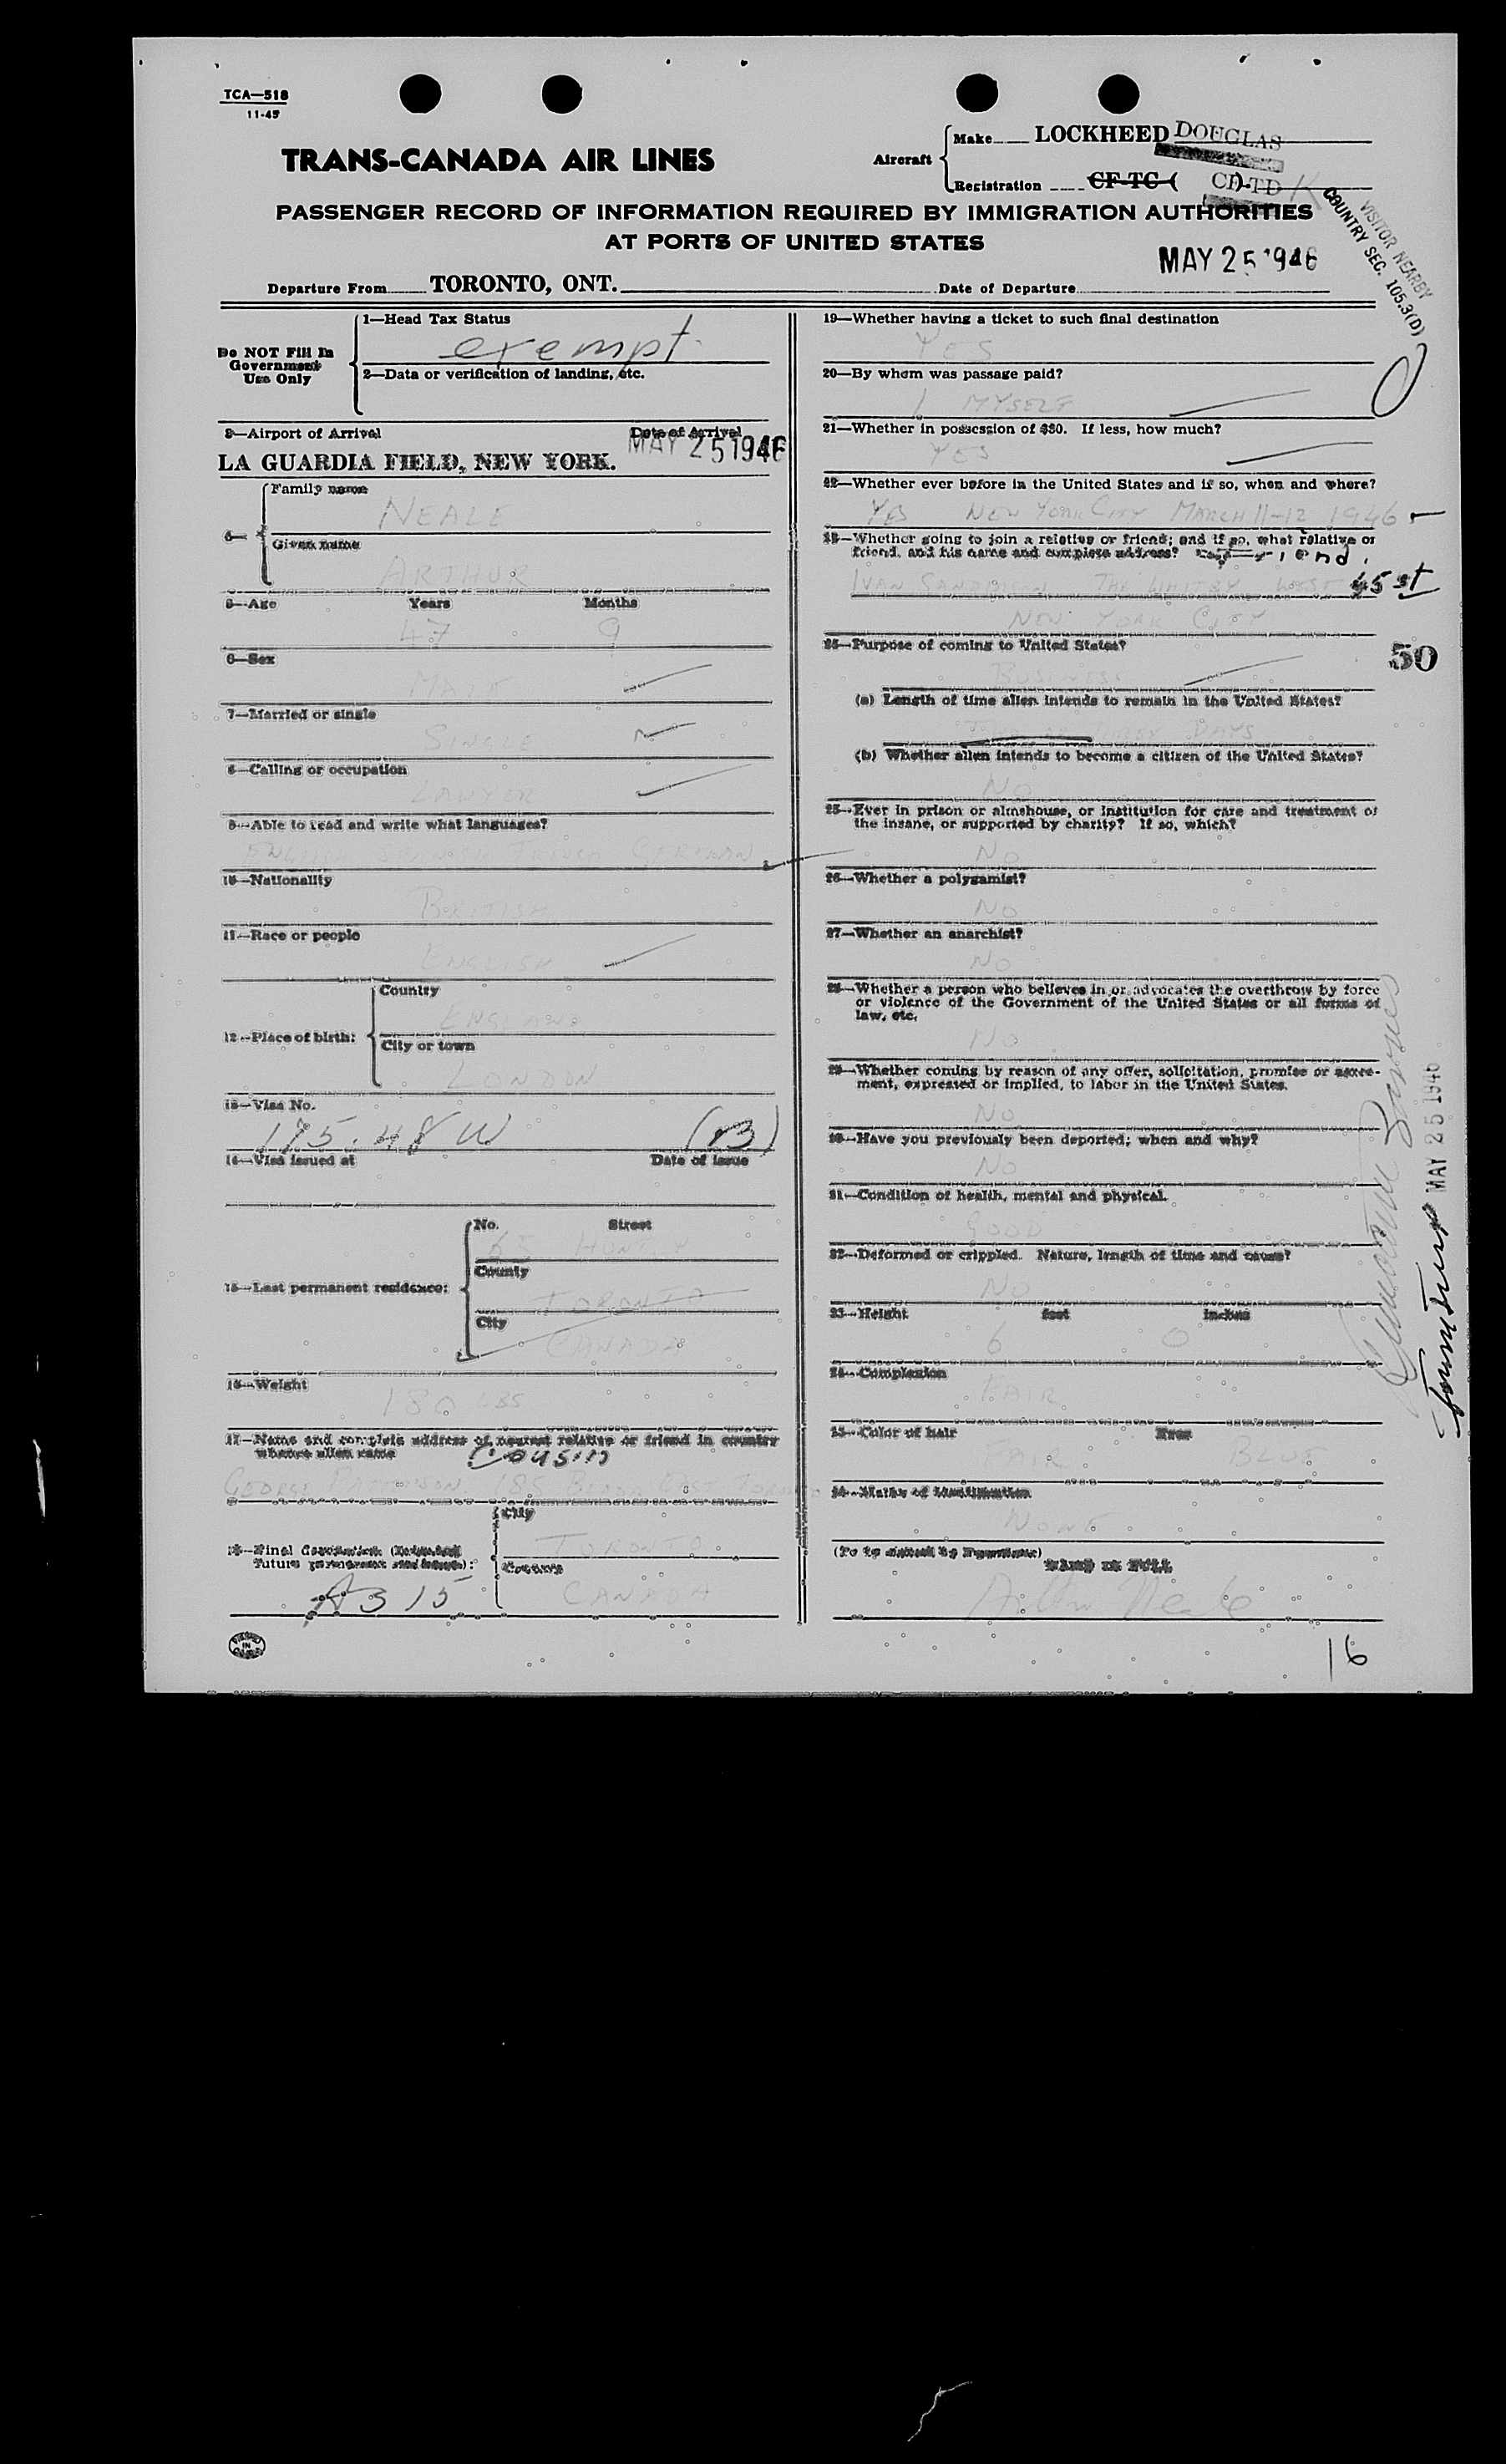 TCA—518
11-45
TRANS-CANADA AIR LINES
Aircraft
Make LOCKHEED DOUGLAS
Registration CF-TC- ( ) CF-TD K
PASSENGER RECORD OF INFORMATION REQUIRED BY IMMIGRATION AUTHORITIES
AT PORTS OF UNITED STATES
VISITOR NEARBY
COUNTRY SEC. 105.3(D)
MAY 25 1946
Departure From TORONTO, ONT. Date of Departure
Do NOT Fill In
Government
Use Only
1—Head Tax Status
exempt
2—Data or verification of landing, etc.
3—Airport of Arrival Date of Arrival
LA GUARDIA FIELD, NEW YORK. MAY 25 1946
4— Family name
NEALE
Given name
ARTHUR
5—Age Years Months
47 9
6—Sex
MALE
7—Married or single
SINGLE
8—Calling or occupation
LAWYER
9—Able to read and write what languages?
GERMAN
10—Nationality
BRITISH
11—Race or people
ENGLISH
12—Place of birth:
Country
ENGLAND
City or town
LONDON
13—Visa No.
175.48 W (r3)
14—Visa issued at Date of issue
15—Last permanent residence:
No. Street
65
County
TORONTO
City
CANADA
16—Weight
180 LBS
17—Name and complete address of nearest relative or friend in country
whence alien came
Cousin
GEORGE 185 BLOOR EAST
18—Final destination (Intended
future permanent residence):
City
TORONTO
Country
CANADA
A3 15
19—Whether having a ticket to such final destination
YES
20—By whom was passage paid?
MYSELF
21—Whether in possession of $50. If less, how much?
YES
22—Whether ever before in the United States and if so, when and where?
YES NEW YORK CITY MARCH 11-12 1946
23—Whether going to join a relative or friend; and if so, what relative or
friend, and his name and complete address? friend.
IVAN SANDERSON THE WHITBY WEST 45 st
NEW YORK CITY
24—Purpose of coming to United States?
50
BUSINESS
(a) Length of time alien intends to remain in the United States?
DAYS
(b) Whether alien intends to become a citizen of the United States?
NO
25—Ever in prison or almshouse, or institution for care and treatment of
the insane, or supported by charity? If so, which?
NO
26—Whether a polygamist?
NO
27—Whether an anarchist?
NO
28—Whether a person who believes in or advocates the overthrow by force
or violence of the Government of the United States or all forms of
law, etc.
NO
29—Whether coming by reason of any offer, solicitation, promise or agree-
ment, expressed or implied, to labor in the United States.
NO
30—Have you previously been deported; when and why?
NO
31—Condition of health, mental and physical.
GOOD
32—Deformed or crippled. Nature, length of time and cause?
NO
33—Height feet inches
6 0
34—Complexion
FAIR
35—Color of hair Eyes
FAIR BLUE
36—Marks of identification
NONE
(To be signed by Passenger)
NAME IN FULL
Arthur Neale
MAY 25 1946
PRINTED
IN
CANADA
16